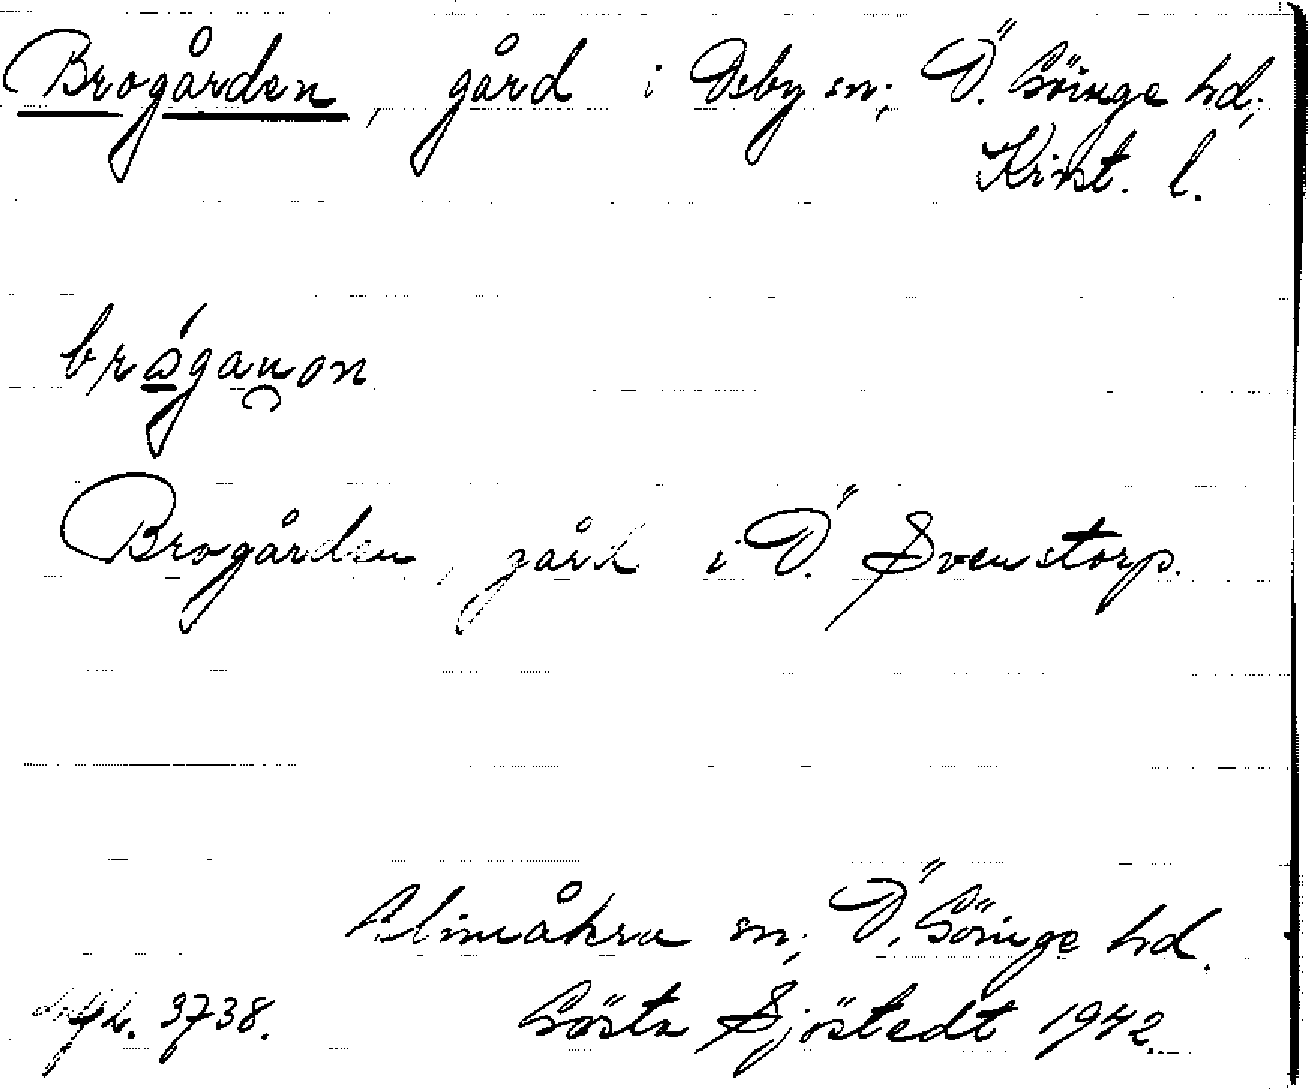 Brogården, gård i Osby sn; Ö. Göinge hd;
Krist. l.
brógaṇon
Brogården, gård i Ö. Svenstorp.
Glimåkra sn; Ö. Göinge hd.
3738. Gösta Sjöstedt 1942.